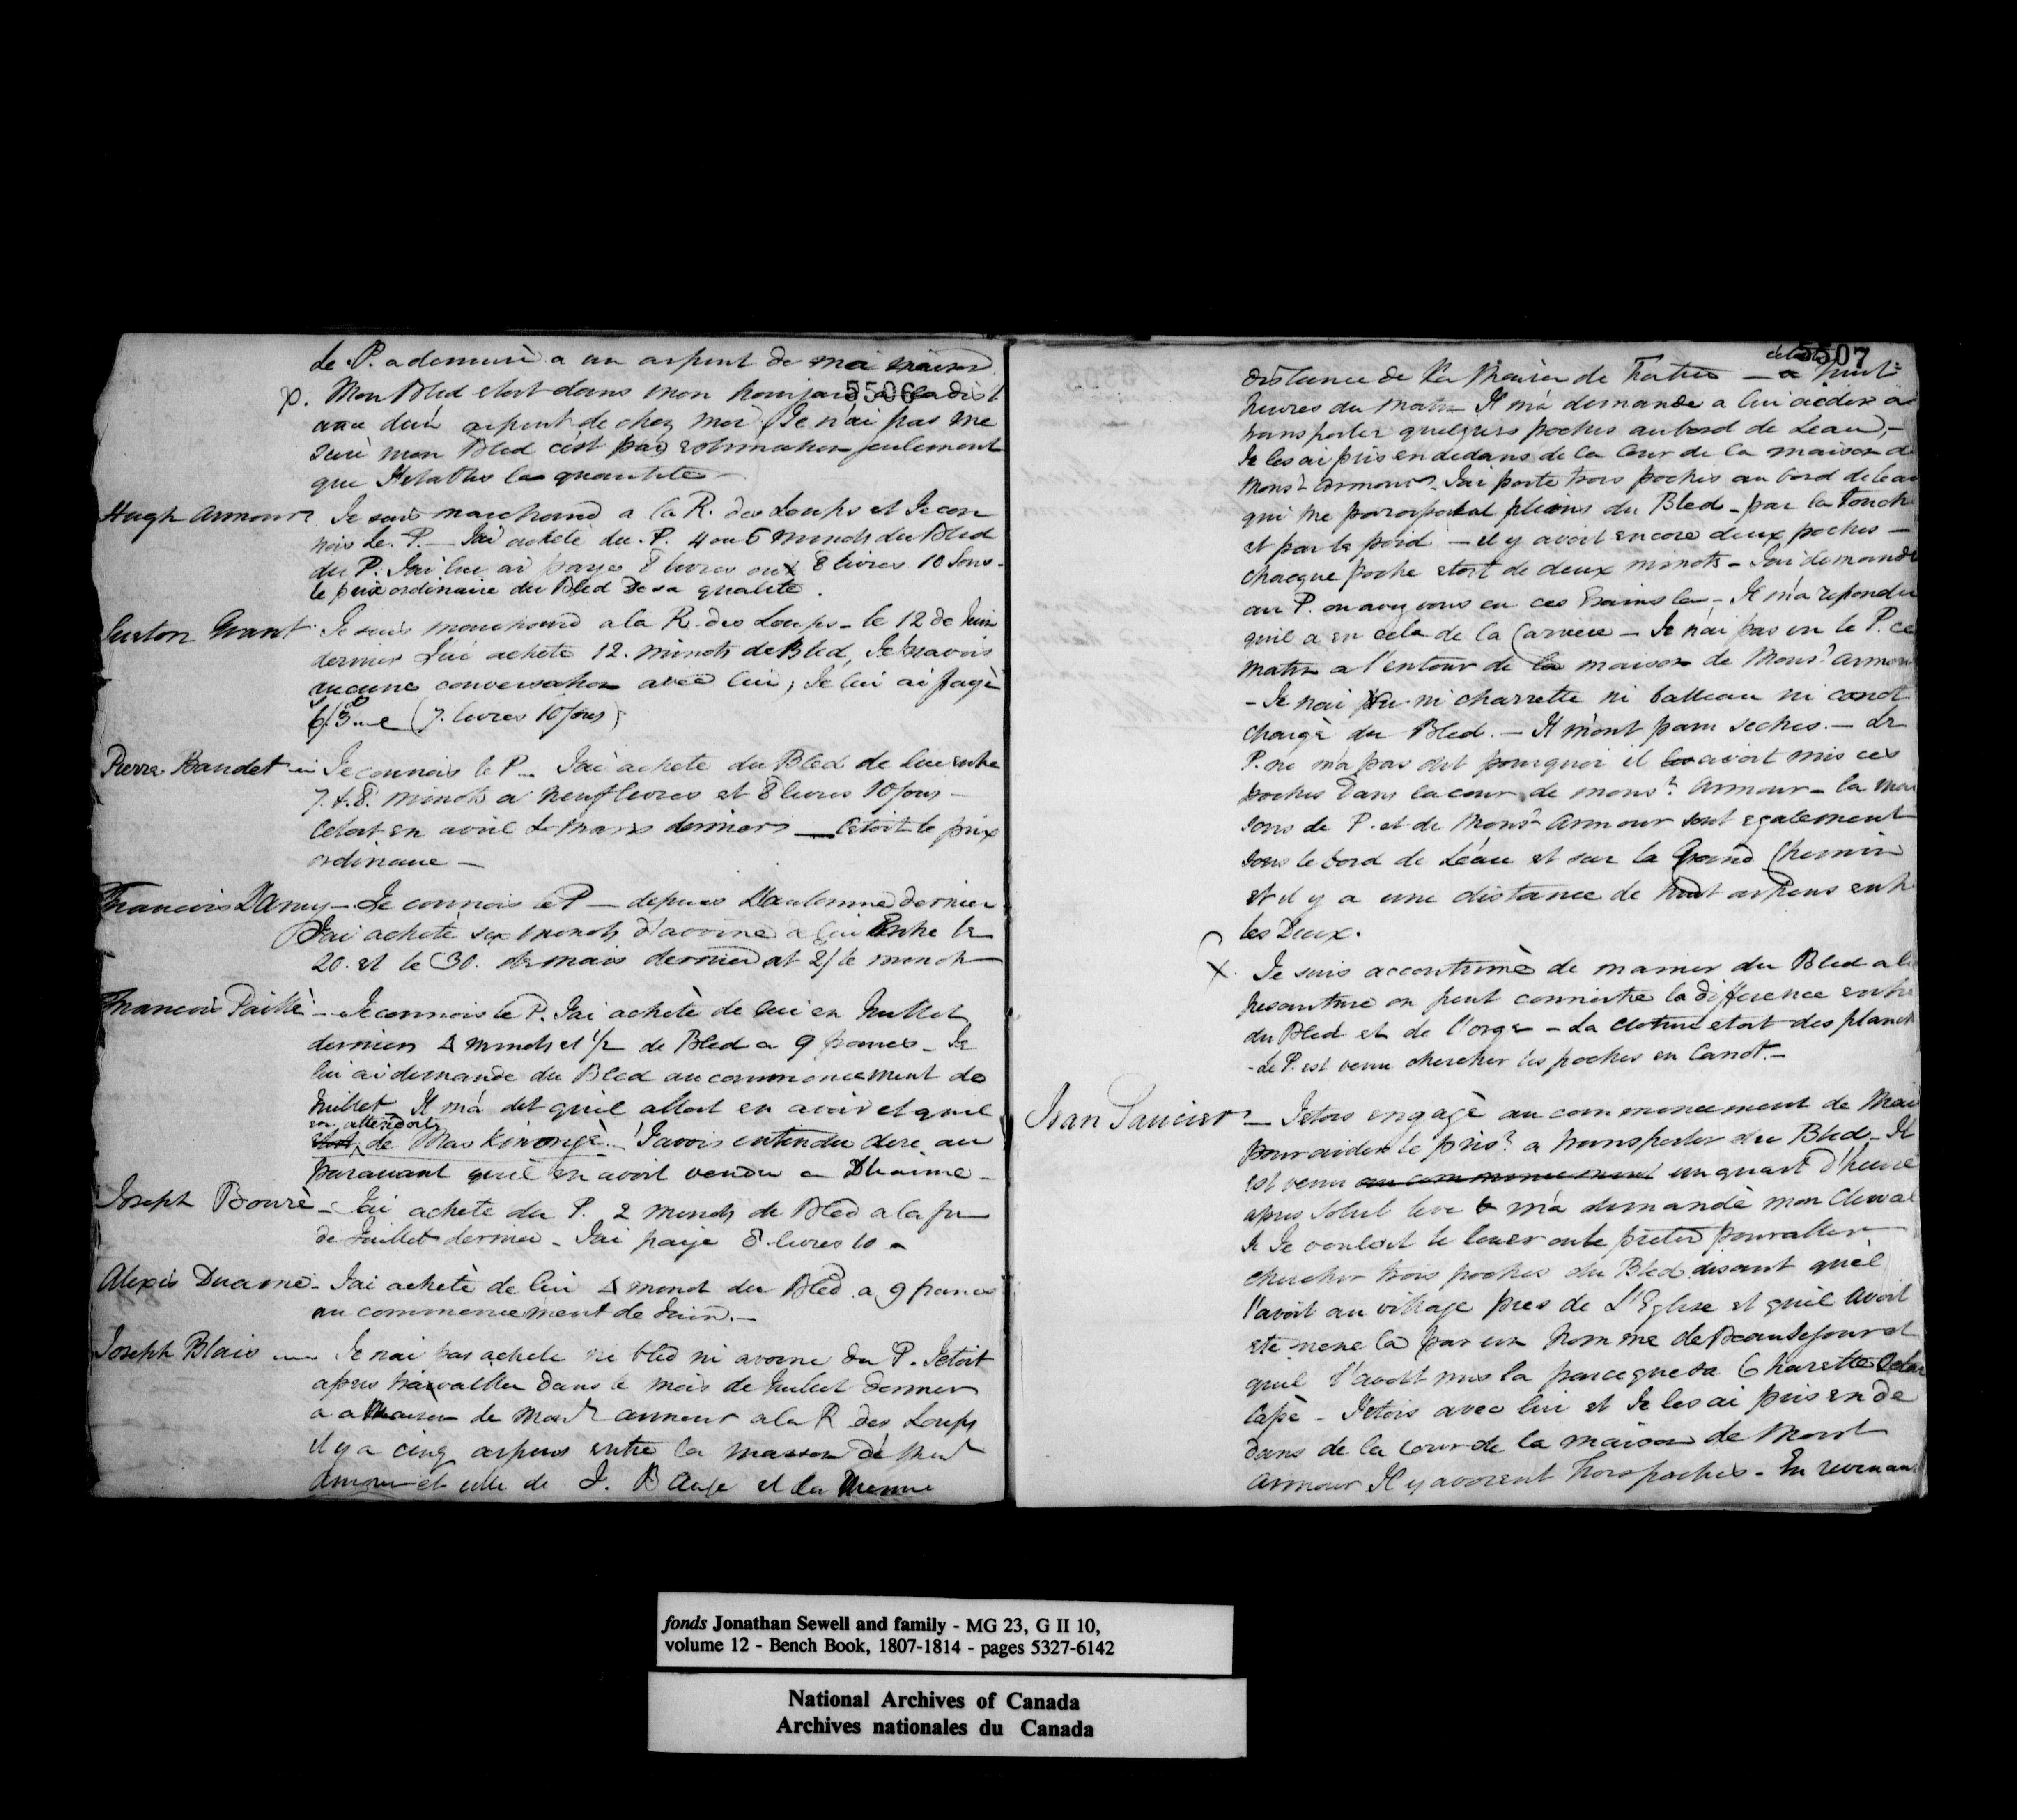 le P. a demeuré a un arpent de ma maison
X. Mon Bled etoit dans mon
5506
arpent de chez moi. Je n'ai pas me
suré mon Bled c'est par estimation seulement
que J'etablis la quantité
Hugh Armour Je suis marchand a la R. des Loups et Je con
nois le P. — J'ai acheté du P. 4 ou 5 minots du Bled
du P. J'ai lui ai payé 8 livres ou 8 livres 10 Sous -
le prix ordinaire du Bled de sa qualité.
Grant. Je suis marchand a la R. des Loups - le 12 de Juin
dernier J'ai acheté 12. minots de Bled, Je n'avois
aucune conversation avec lui; Je lui ai payé
6/3 (7. livres 10 sous)
Pierre Baudet Je connois le P — J'ai acheté du Bled de lui entre
7. & 8. minots a neuf livres et 8 livres 10 sous -
C'etoit en avril & mars dernier — C'etoit le prix
ordinaire —
Francois — Je connois le P — depuis L'automne dernier
J'ai acheté six minots d'avoine a lui Entre le
20. et le 30. de mais dernier at 2/ le minot
Francois Paillé — Je connois le P. J'ai acheté de lui en Juillet
dernier minots et 1/2 de Bled a 9 francs - Je
lui ai demandé du Bled au commencement de
Juillet Il m'a dit qu'il alloit en avoir et qu'il
en attendoit
etoit de Maskinongé. J'avois entendu dire au
paravant qu'il en avoit vendu a Dhaime -
Joseph Bouré - J'ai acheté du P. 2 minots de Bled a la fin
de Juillet dernier - J'ai payé 8 livres 10
Alexis Duame - J'ai acheté de lui minot du Bled a 9 francs
au commencement de Juin. —
Joseph Blais Je n'ai pas acheté ni bled ni avoine du P. J'etoit
apres travailler dans le mois de Juilet dernier
a a Maison de Armour a la R des Loups
il y a cinq arpens entre la maison de
Armour et celle de J. B et la Mienne
5507
distance de la Maison de — a huit
heures du matin Il m'a demandé a lui aider a
transporter quelques poches au bord de Leau, -
Je les ai pris en dedans de la Cour de la maison de
Monsr Armour. J'ai porté trois poches au bord de leau
qui me pleins du Bled - par la touche
et par le poid — il y avoit encore deux poches —
chacque poche etoit de deux minots - J'ai demandé
au P. ou avez vous eu ces Grains la - Il m'a repondu
qu'il a eu cela de la Carriere — Je n'ai pas vu le P. ce
matin a l'entour de la maison de Monsr Armour
- Je n'ai vu ni charrette ni batteau ni canot
chargé du Bled. — Il m'ont paru seches. — Le
P. ne m'a pas dit pourquoi il avoit mis ces
poches dans la cour de monsr Armour - la mai
sons de P. et de Monsr Armour sont egalement
sous le bord de Léau et sur la Grand Chemin
et il y a une distance de huit arpens entre
les Deux.
X. Je suis accoutumé de manier du Bled a la
pesanture on peut connoitre la difference entre
du Bled et de l'orge - La cloture etoit des planch
- Le P. est venu chercher les poches en Canot. —
Jean Saucier — J'etois engagé au commencement de Mai
pour aider le prisr a transporter du Bled - Il
est venu au commencement un quart d'heure
apres Soleil levé & m'a demandé mon cheval
si Je voulois le louer ou le preter pour aller
chercher trois poches du Bled disant qu'il
l'avoit au village pres de L'Eglise et qu'il avoit
eté mené la par un homme de et
qu'il l'avoit mis la parceque sa Charette
Capé - J'etois avec lui et Je les ai pris en de
dans de la cour de la maison de Monsr
Armour Il y avoient trois poches - En revenant
fonds Jonathan Sewell and family - MG 23, G II 10,
volume 12 - Bench Book, 1807-1814 - pages 5327-6142
National Archives of Canada
Archives nationales du Canada